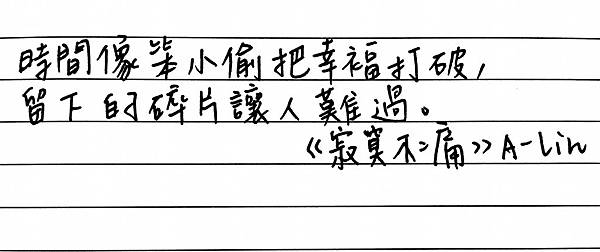 時間像笨小偷把幸福打破,
留下的碎片讓人難過。
《寂寞不痛》A-Lin